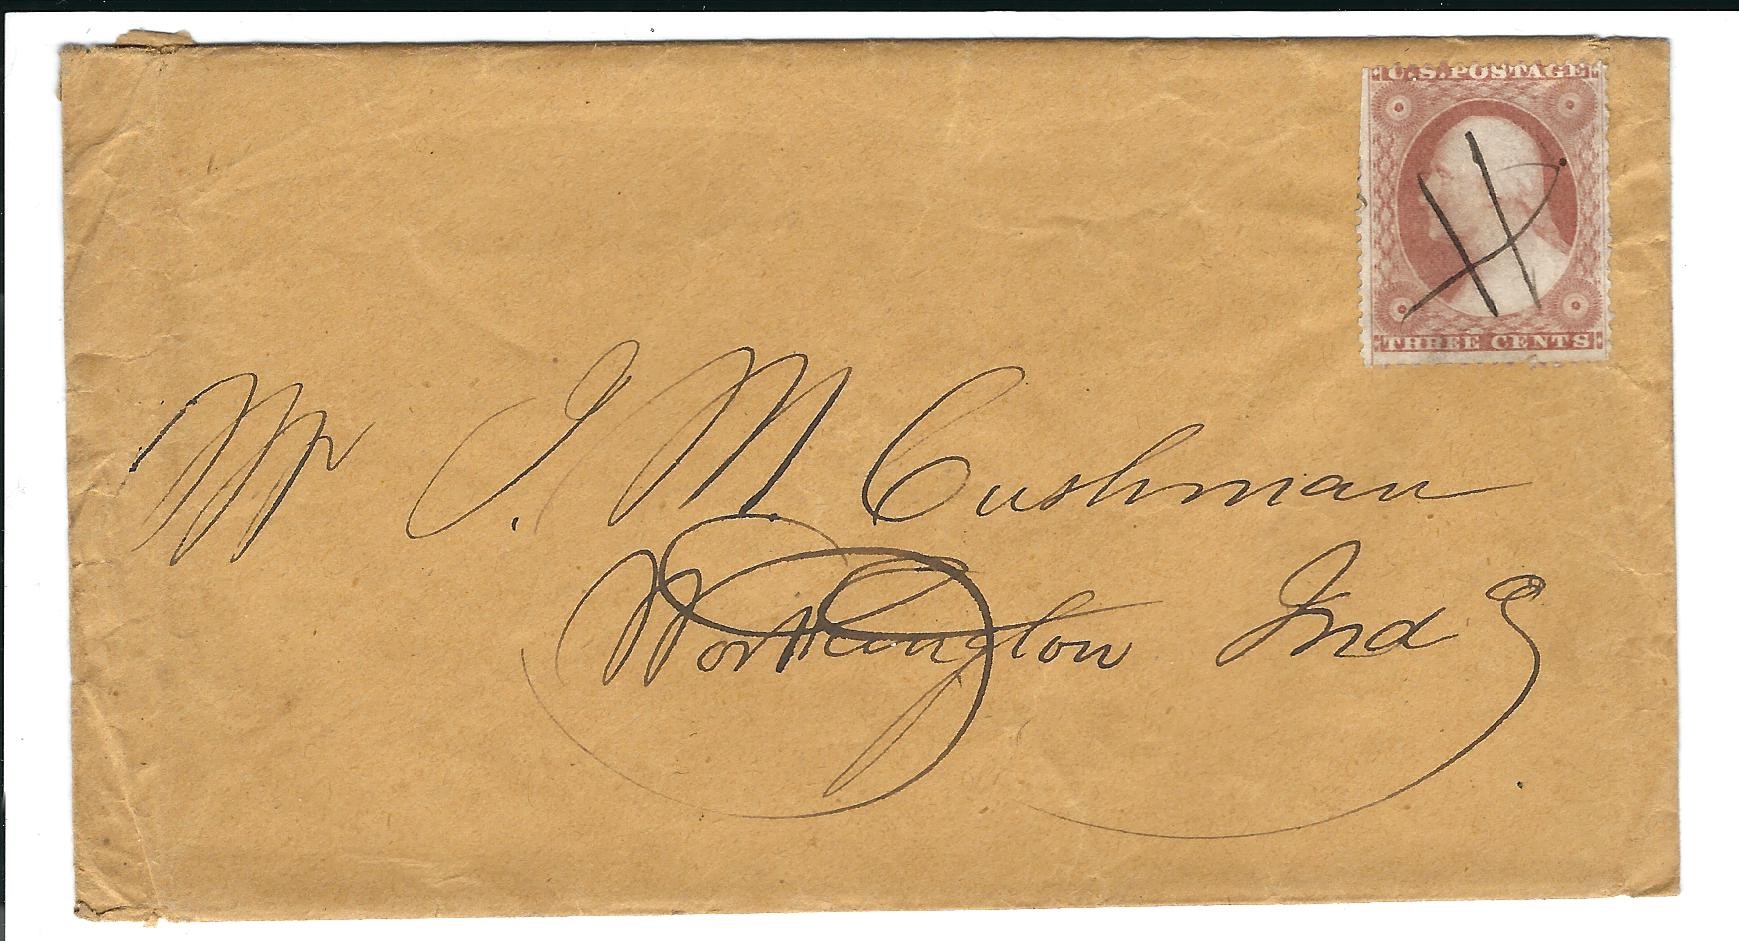 U.S. POSTAGE
THREE CENTS
Mr J. M. Cushman
Worthington Ind